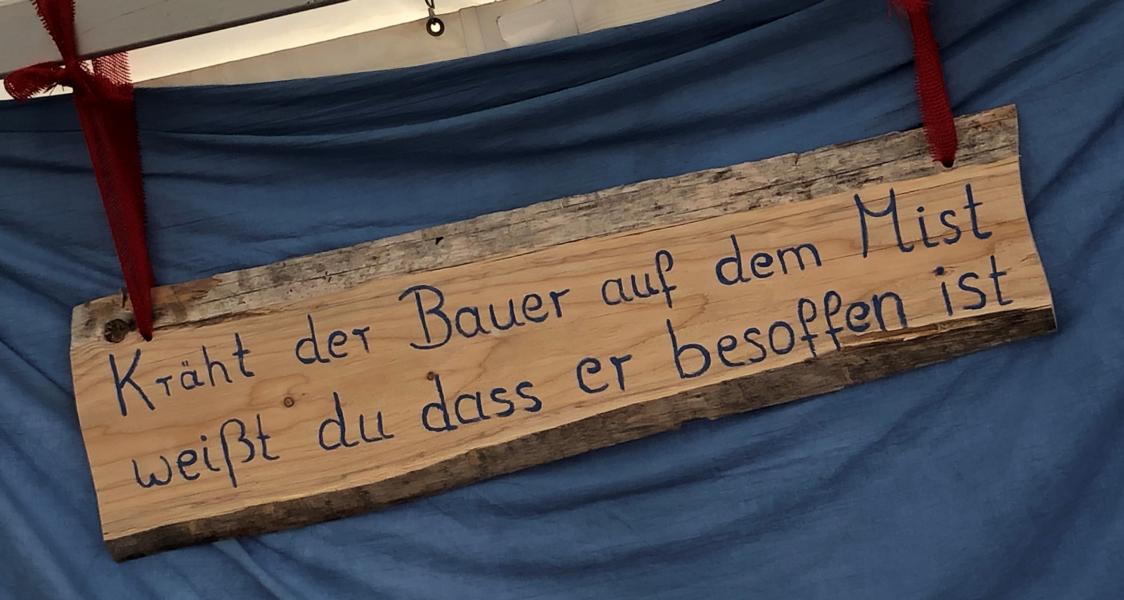 Kräht der Bauer auf dem Mist
weißt du dass er besoffen ist